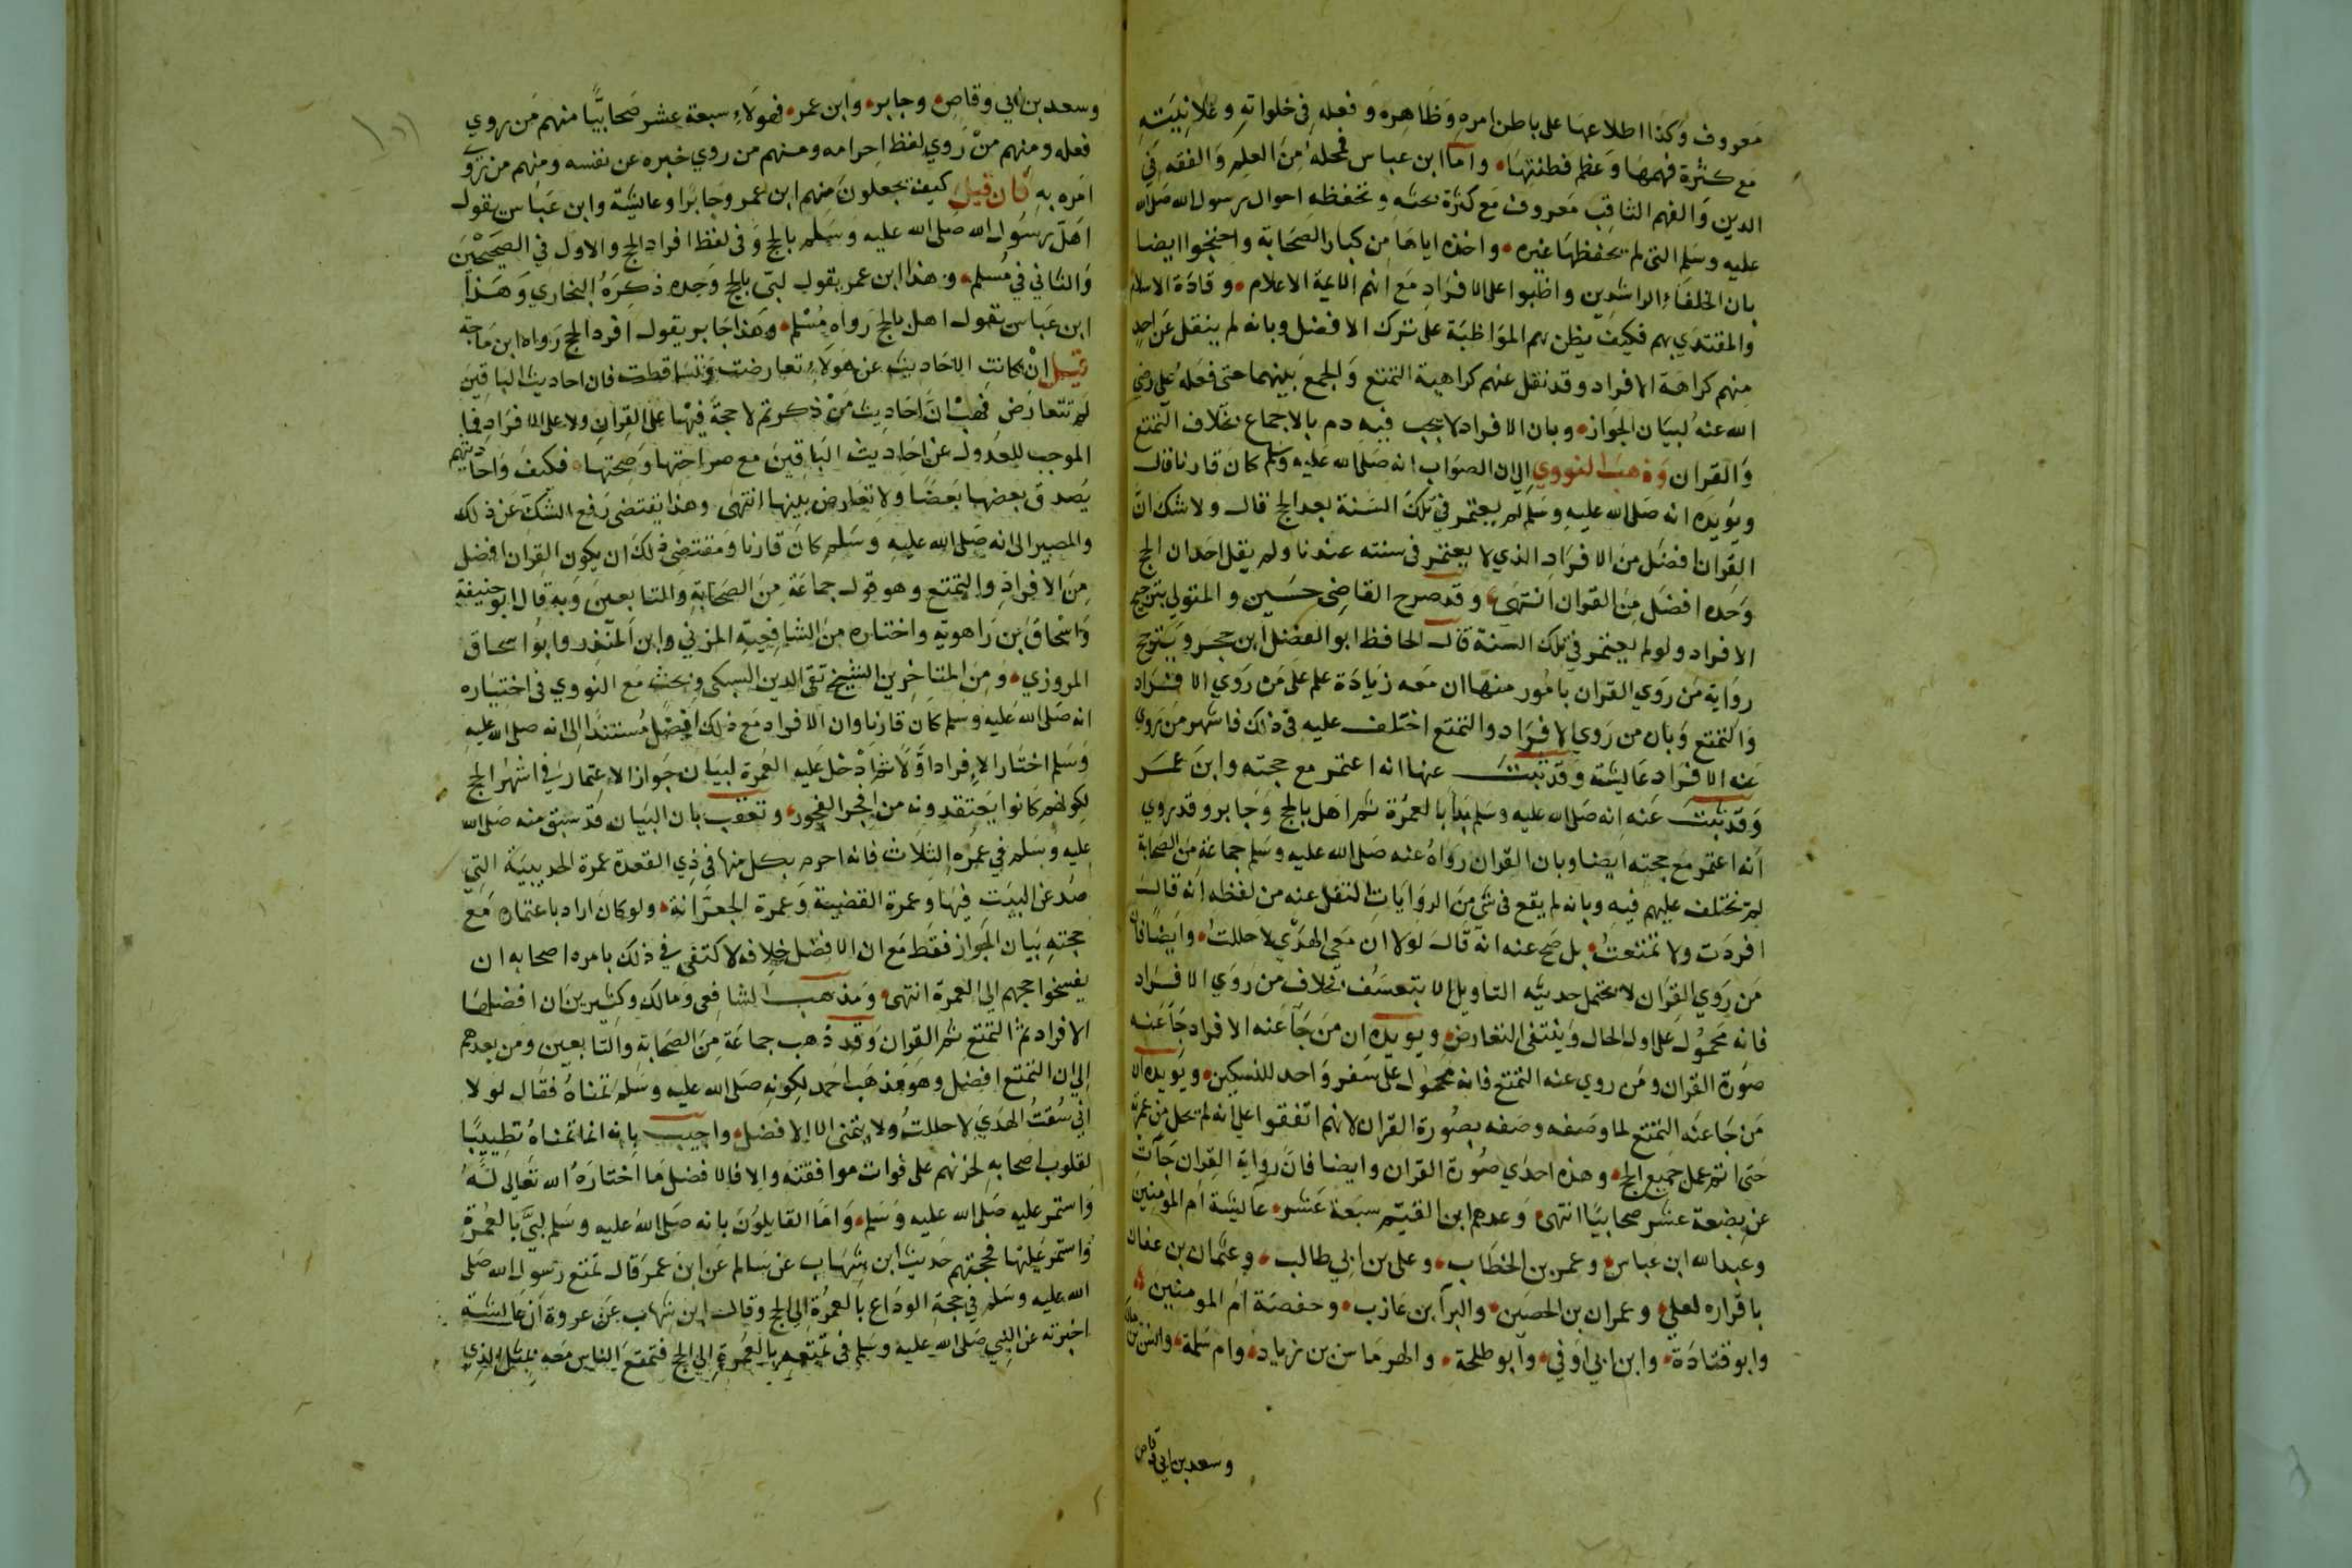 معروف وكذا اطلاعها على باطن امره وظاهره وفعله في خلواته وعلانيته
مع كثرة فهمها وعظم فطنتها واما ابن عباس فمحله من العلم والفقه في
الدين والفهم الثاقب معروف مع كثرة بحثه وتحفظه احوال رسول الله صلى الله
عليه وسلم التي لم يحفظها غيره واخذه اياها من كبار الصحابة واحتجوا ايضا
بان الخلفاء الراشدين واظبوا على الافراد مع انهم الايمة الاعلام وقادة الاسلام
والمقتدي بهم فكيف يظن بهم المواظبة على ترك الافضل وبانه لم ينقل عن احد
منهم كراهة الافراد وقد نقل عنهم كراهية التمتع والجمع بينهما حتى فعله علي رضي
الله عنه لبيان الجواز وبان الافراد لا يجب فيه دم بالاجماع بخلاف التمتع
والقران وذهب النووي الى ان الصواب انه صلى الله عليه وسلم كان قارنا قال
ويؤيده انه صلى الله عليه وسلم لم يعتمر في تلك السنة بعد الحج قال ولا شك ان
القران افضل من الافراد الذي لا يعتمر في سنته عندنا ولم يقل احد ان الحج
وحده افضل من القران انتهى وقد صرح القاضي حسين والمتولي بترجيح
الافراد ولو لم يعتمر في تلك السنة قال الحافظ ابو الفضل ابن حجر ويترجح
رواية من روي القران بامور منها ان معه زيادة علم على من روي الافراد
والتمتع وبان من روي الافراد والتمتع اختلف عليه في ذلك فاشهر من روي
عنه الافراد عايشة وقد ثبت عنها انه اعتمر مع حجته وابن عمر
وقد ثبت عنه انه صلى الله عليه وسلم بدأ بالعمرة ثم اهل بالحج وجابر وقد روي
انه اعتمر مع حجته ايضا وبان القران رواه عنه صلى الله عليه وسلم جماعة من الصحابة
لم تختلف عليهم فيه وبانه لم يقع في شي من الروايات النقل عنه من لفظه انه قال
افردت ولا تمتعت بل صح عنه انه قال لولا ان معي الهدي لاحللت وايضا فان
من روي القران لا يحتمل حديثه التاويل الا بتعسف بخلاف من روي الافراد
فانه محمول على اول الحال وينتفي التعارض ويويده ان من جا عنه الافراد جا عنه
صورة القران ومن روي عنه التمتع فانه محمول على سفر واحد للنسكين ويويده ان
من جا عنه التمتع لما وصفه وصفه بصورة القران لانهم اتفقوا على انه لم يحل من عمرته
حتى اتم عمل جميع الحج وهذه احدي صورة القران وايضا فان رواية القران جآت
عن بضعة عشر صحابيا انتهى وعدهم ابن القيم سبعة عشر عايشة ام المومنين
وعبد الله ابن عباس وعمر بن الخطاب وعلى بن ابي طالب وعثمان بن عفان
باقراره لعلي وعمران بن الحصين والبرآ بن عازب وحفصة ام المومنين
وابو قتادة وابن ابي اوفي وابو طلحة والهرماس بن زياد وام سلمة وانس بن مالك
وسعد بن ابي وقاص
وسعد بن ابي وقاص وجابر وابن عمر فهولاء سبعة عشر صحابيا منهم من روي
فعله ومنهم من روي لفظ احرامه ومنهم من روي خبره عن نفسه ومنهم من روي
امره به فان قيل كيف تجعلون منهم ابن عمر وجابرا وعايشة وابن عباس يقول
اهل رسول الله صلى الله عليه وسلم بالحج وفي لفظ افراد الحج والاول في الصحيحين
والثاني في مسلم وهذا ابن عمر يقول لبى بالحج وحده ذكره البخاري وهذا
ابن عباس يقول اهل بالحج رواه مسلم وهذا جابر يقول افرد الحج رواه ابن ماجة
قيل ان كانت الاحاديث عن هولاء تعارضت وتساقطت فان احاديث الباقين
لم تتعارض فهب ان احاديث من ذكرتم لا حجة فيها على القران ولا على الافراد فما
الموجب للعدول عن احاديث الباقين مع صراحتها وصحتها فكيف واحاديثهم
يصدق بعضها بعضا ولا تعارض بينها انتهى وهذا يقتضي رفع الشك عن ذلك
والمصير الى انه صلى الله عليه وسلم كان قارنا ومقتضى ذلك ان يكون القران افضل
من الافراد والتمتع وهو قول جماعة من الصحابة والتابعين وبه قال ابو حنيفة
واسحاق ابن راهويه واختاره من الشافعية المزني وابن المنذر وابو اسحاق
المروزي ومن المتاخرين الشيخ تقي الدين السبكي وبحث مع النووي في اختياره
انه صلى الله عليه وسلم كان قارنا وان الافراد مع ذلك افضل مستندا الى انه صلى الله عليه
وسلم اختار الافراد اولا ثم ادخل عليه العمرة لبيان جواز الاعتمار في اشهر الحج
لكونهم كانوا يعتقدونه من افجر الفجور وتعقب بان البيان قد سبق منه صلى الله
عليه وسلم في عمره الثلاث فانه احرم بكل منها في ذي القعدة عمرة الحديبية التي
صد عن البيت فيها وعمرة القضية وعمرة الجعرانة ولو كان اراد باعتماره مع
حجته بيان الجواز فقط مع ان الافضل خلافه لاكتفى في ذلك بامره اصحابه ان
يفسخوا حجهم الى العمرة انتهى ومذهب الشافعي ومالك وكثيرين ان افضلها
الافراد ثم التمتع ثم القران وقد ذهب جماعة من الصحابة والتابعين ومن بعدهم
الى ان التمتع افضل وهو مذهب احمد لكونه صلى الله عليه وسلم تمناه فقال لولا
اني سقت الهدي لاحللت ولا يتمنى الا الافضل واجيب بانه انما تمناه تطييبا
لقلوب اصحابه لحزنهم على فوات موافقته والا فالافضل ما اختاره الله تعالى له
واستمر عليه صلى الله عليه وسلم واما القايلون بانه صلى الله عليه وسلم لبى بالعمرة
واستمر عليها فحجتهم حديث ابن شهاب عن سالم عن ابن عمر قال تمتع رسول الله صلى
الله عليه وسلم في حجة الوداع بالعمرة الى الحج وقال ابن شهاب عن عروة ان عايشة
اخبرته عن النبي صلى الله عليه وسلم في تمتعه بالعمرة الى الحج فتمتع الناس معه بمثل الذي